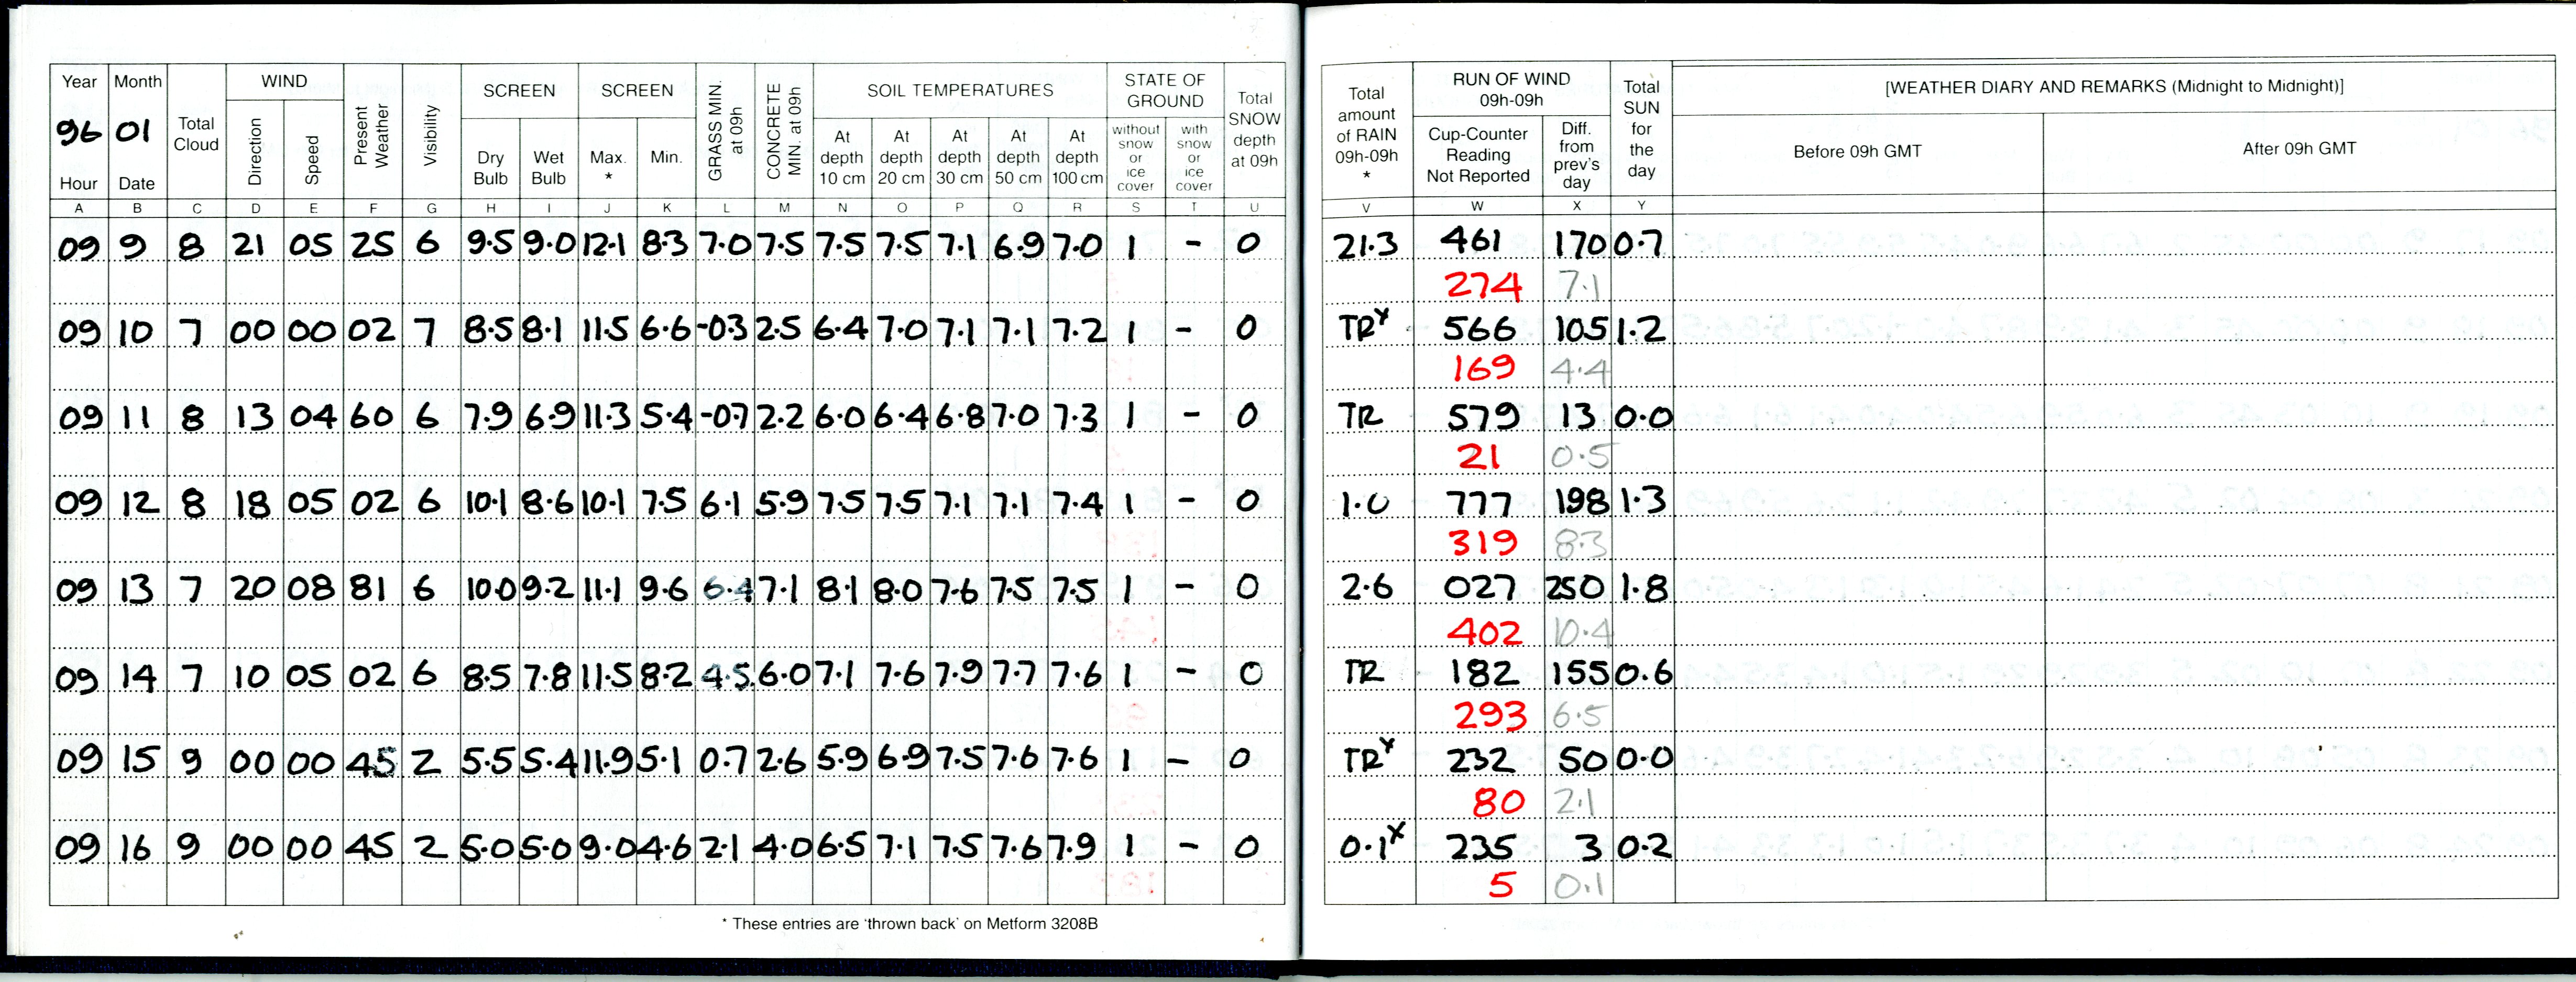 Year Month Total Cloud WIND Present Weather Visibility SCREEN SCREEN GRASS MIN. at 09h CONCRETE MIN. at 09h SOIL TEMPERATURES STATE OF GROUND Total SNOW depth at 09h
96 01 Direction Speed Dry Bulb Wet Bulb Max. * Min. At depth 10 cm At depth 20 cm At depth 30 cm At depth 50 cm At depth 100 cm without snow or ice cover with snow or ice cover
Hour Date
A B C D E F G H I J K L M N O P Q R S T U
09 9 8 21 05 25 6 9.5 9.0 12.1 8.3 7.0 7.5 7.5 7.5 7.1 6.9 7.0 1 - 0
09 10 7 00 00 02 7 8.5 8.1 11.5 6.6 -03 2.5 6.4 7.0 7.1 7.1 7.2 1 - 0
09 11 8 13 04 60 6 7.9 6.9 11.3 5.4 -07 2.2 6.0 6.4 6.8 7.0 7.3 1 - 0
09 12 8 18 05 02 6 10.1 8.6 10.1 7.5 6.1 5.9 7.5 7.5 7.1 7.1 7.4 1 - 0
09 13 7 20 08 81 6 10.0 9.2 11.1 9.6 6.4 7.1 8.1 8.0 7.6 7.5 7.5 1 - 0
09 14 7 10 05 02 6 8.5 7.8 11.5 8.2 4.5 6.0 7.1 7.6 7.9 7.7 7.6 1 - 0
09 15 9 00 00 45 2 5.5 5.4 11.9 5.1 0.7 2.6 5.9 6.9 7.5 7.6 7.6 1 - 0
09 16 9 00 00 45 2 5.0 5.0 9.0 4.6 2.1 4.0 6.5 7.1 7.5 7.6 7.9 1 - 0
* These entries are 'thrown back' on Metform 3208B
Total amount of RAIN 09h-09h * RUN OF WIND 09h-09h Total SUN for the day [WEATHER DIARY AND REMARKS (Midnight to Midnight)]
Cup-Counter Reading Not Reported Diff. from prev's day Before 09h GMT After 09h GMT
V W X Y
21.3 461 170 0.7
274 7.1
TRY 566 105 1.2
169 4.4
TR 579 13 0.0
21 0.5
1.0 777 198 1.3
319 8.3
2.6 027 250 1.8
402 10.4
TR 182 155 0.6
293 6.5
TRY 232 50 0.0
80 2.1
0.1x 235 3 0.2
5 0.1